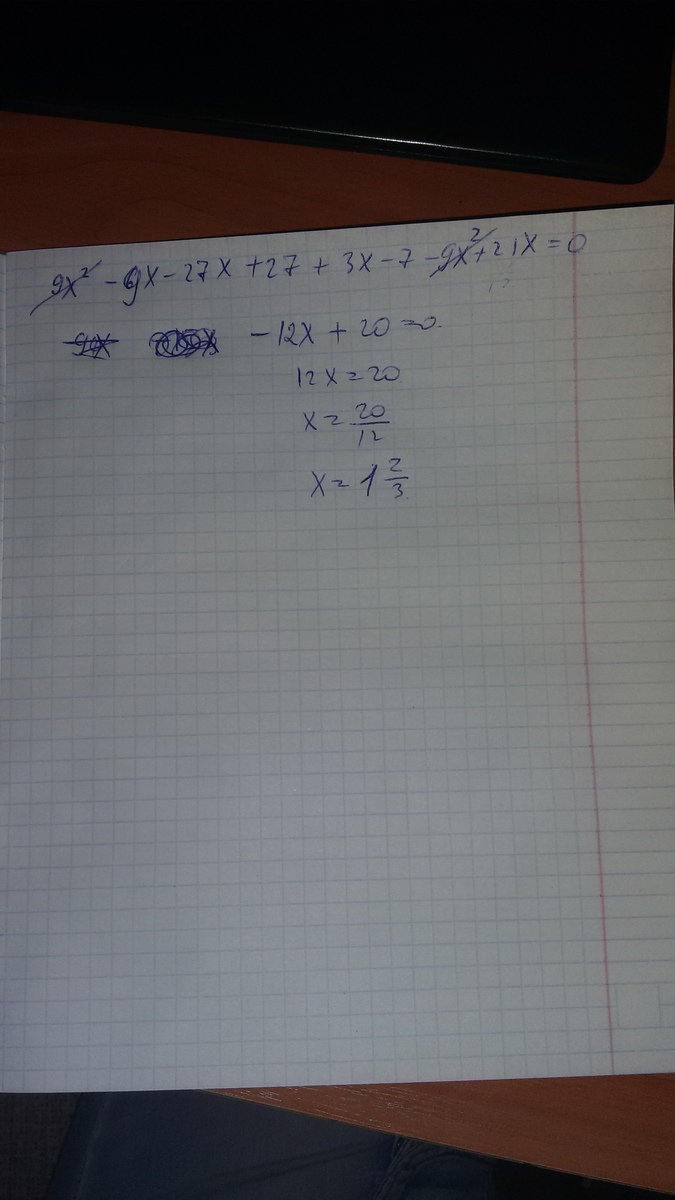 9x² - 9x - 27x + 27 + 3x - 7 - 9x² + 21x = 0
-12x + 20 = 0.
12x = 20
x = 20/12
x = 1 2/3